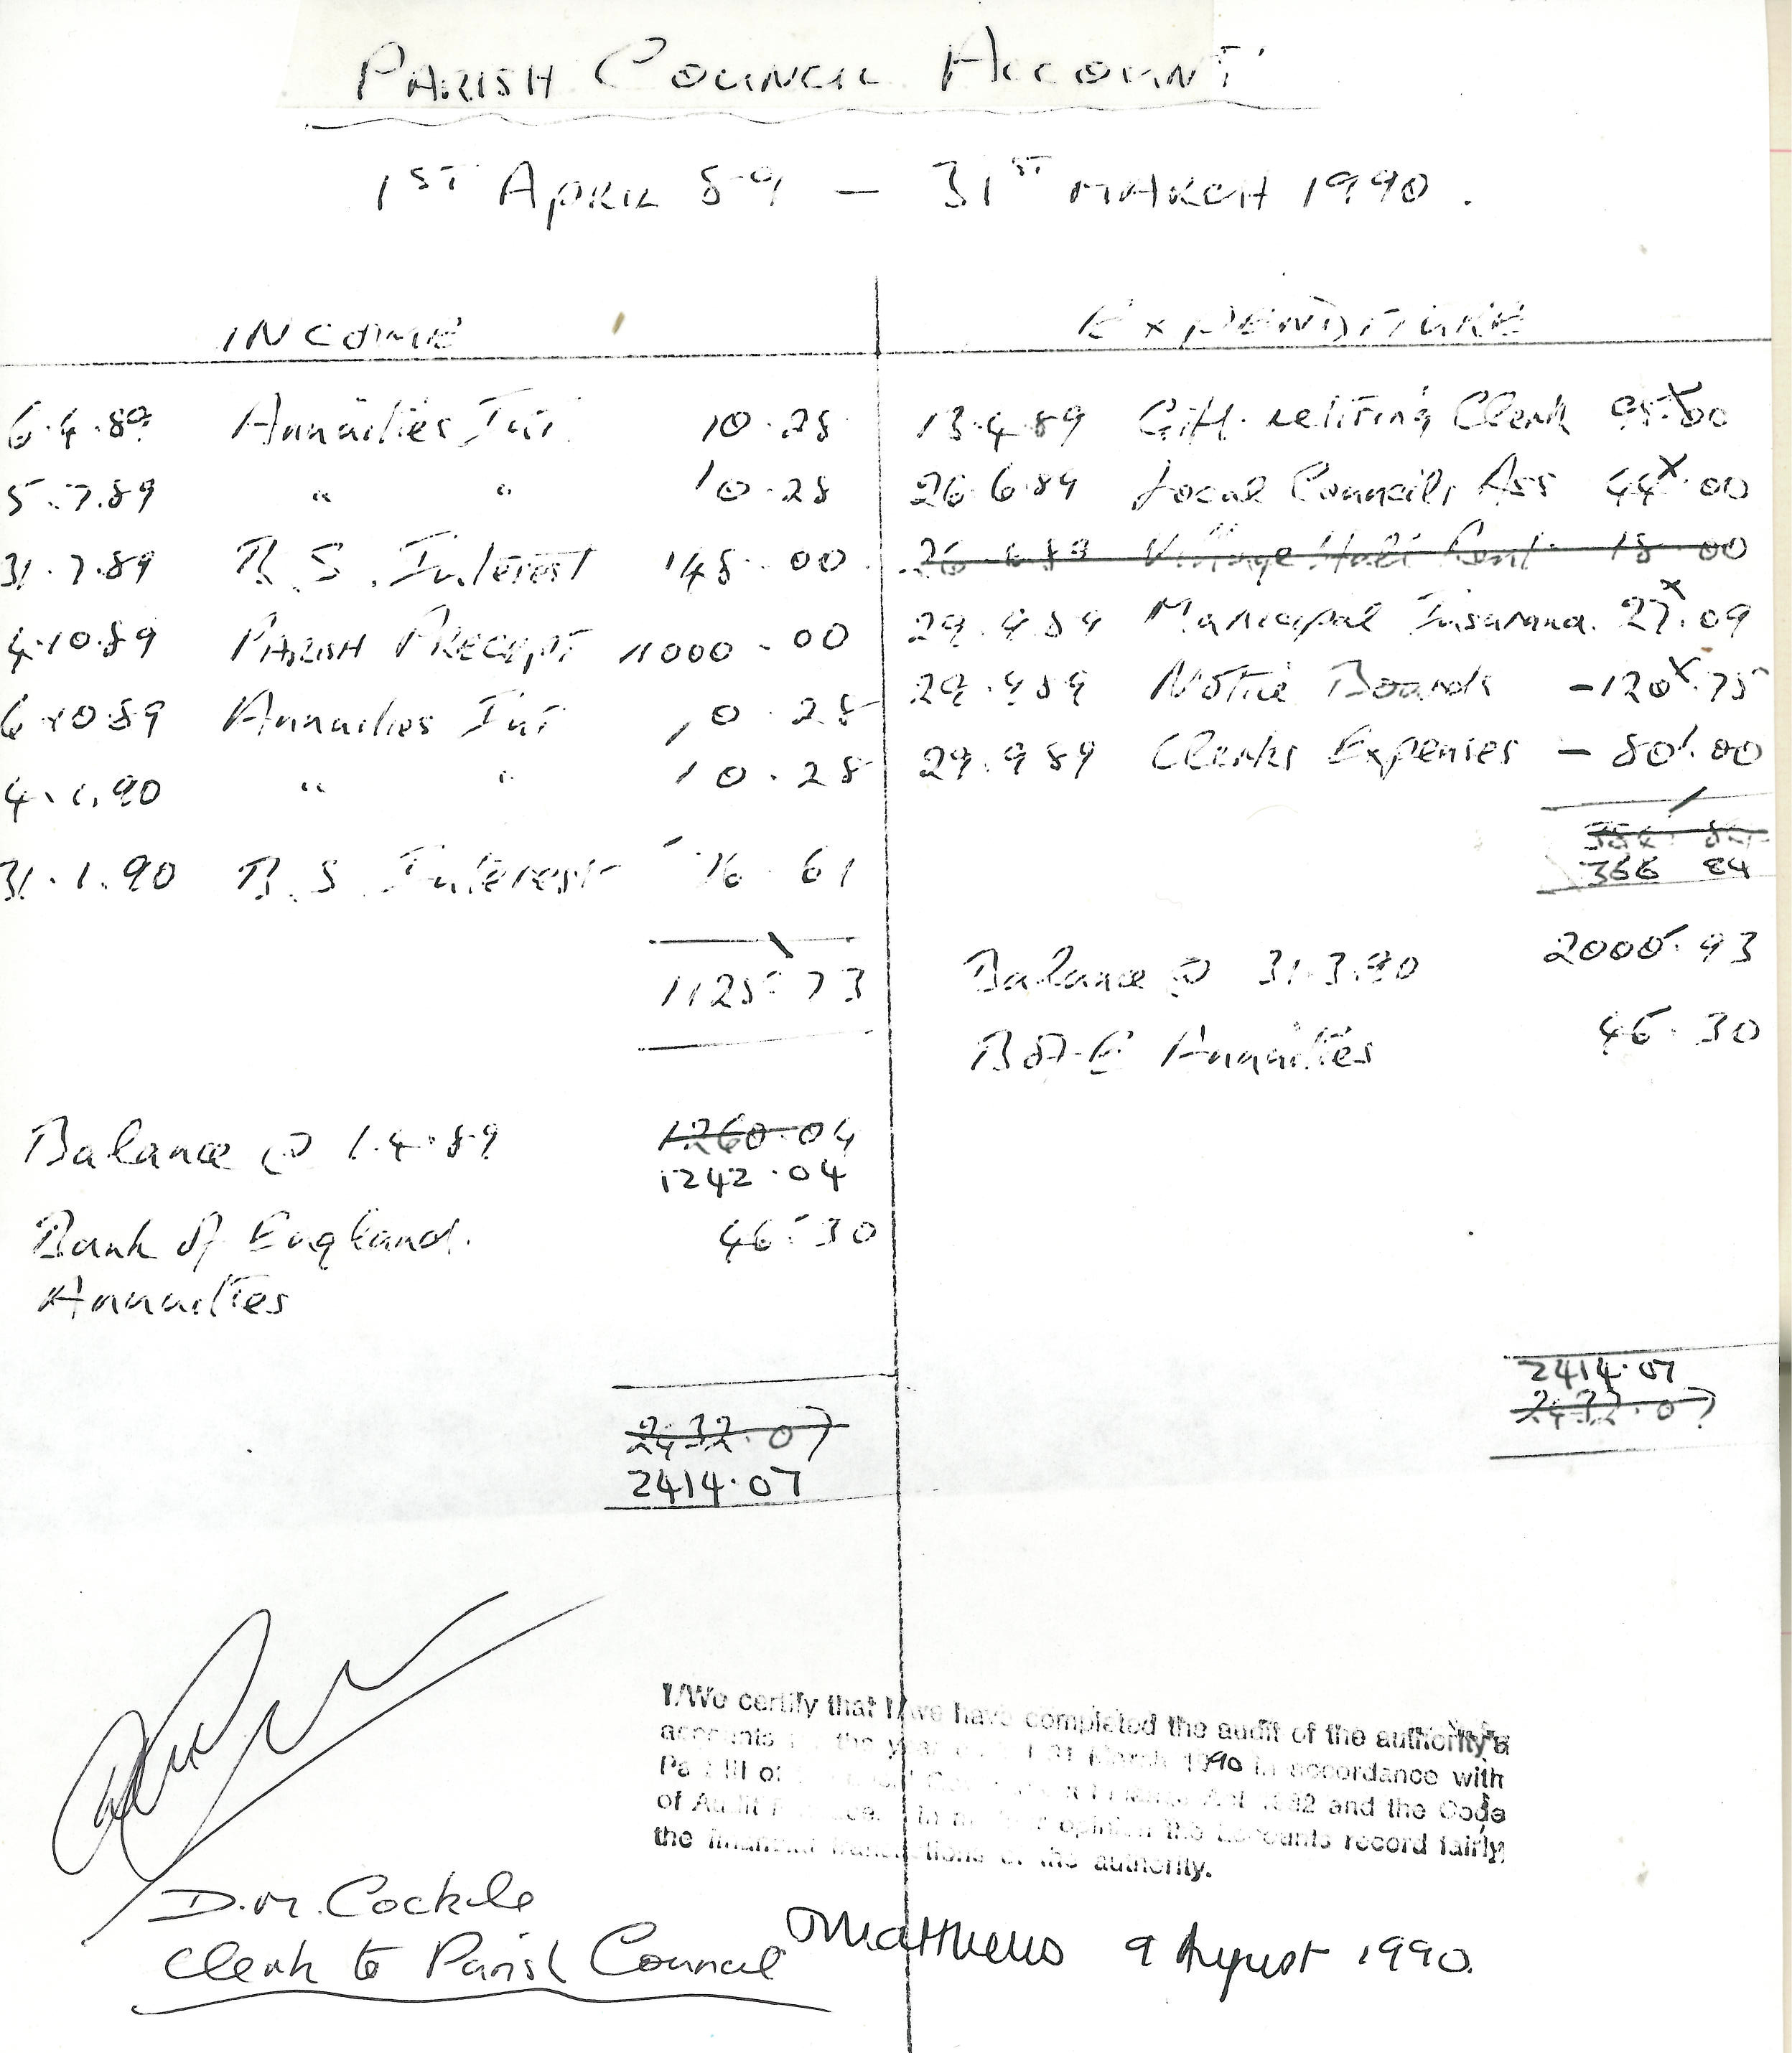 PARISH COUNCIL ACCOUNT
1ST APRIL 89 — 31ST MARCH 1990.
INCOME
6.4.89 Annuities Int. 10.28
5.7.89 " " 10.28
31.7.89 B.S. Interest 48.00
4.10.89 PARISH PRECEPT 1000.00
6.10.89 Annuities Int 10.28
4.1.90 " " 10.28
31.1.90 B.S. Interest 36.61
1125.73
Balance @ 1.4.89 1260.04
1242.04
Bank of England. 46.30
Annuities
2432.07
2414.07
EXPENDITURE
13.4.89 Gift. retiring Clerk 95.00
26.6.89 Local Councils Ass 44.00
26.6.89 Village Hall Rent 18.00
29.9.89 Municipal Insurance. 27.09
29.9.89 Notice Boards - 120.75
29.9.89 Clerks Expenses - 80.00
384 84
366 84
Balance @ 31.3.90 2000.93
B of E Annuities 46.30
2414.07
2432.07
I/We certify that I/we have completed the audit of the authority's
accounts for the year ended 31 March 1990 in accordance with
Part III of the Local Government Finance Act 1982 and the Code
of Audit Practice. In my/our opinion the accounts record fairly
the financial transactions of the authority.
D.M. Cockle
Clerk to Parish Council
Matthews 9 August 1990.